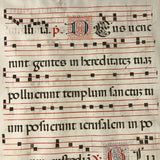 p. Deus vene
runt gentes in hereditatez tuaz
polluerunt templum sanctus tu
um posuerunt ierusalem in po